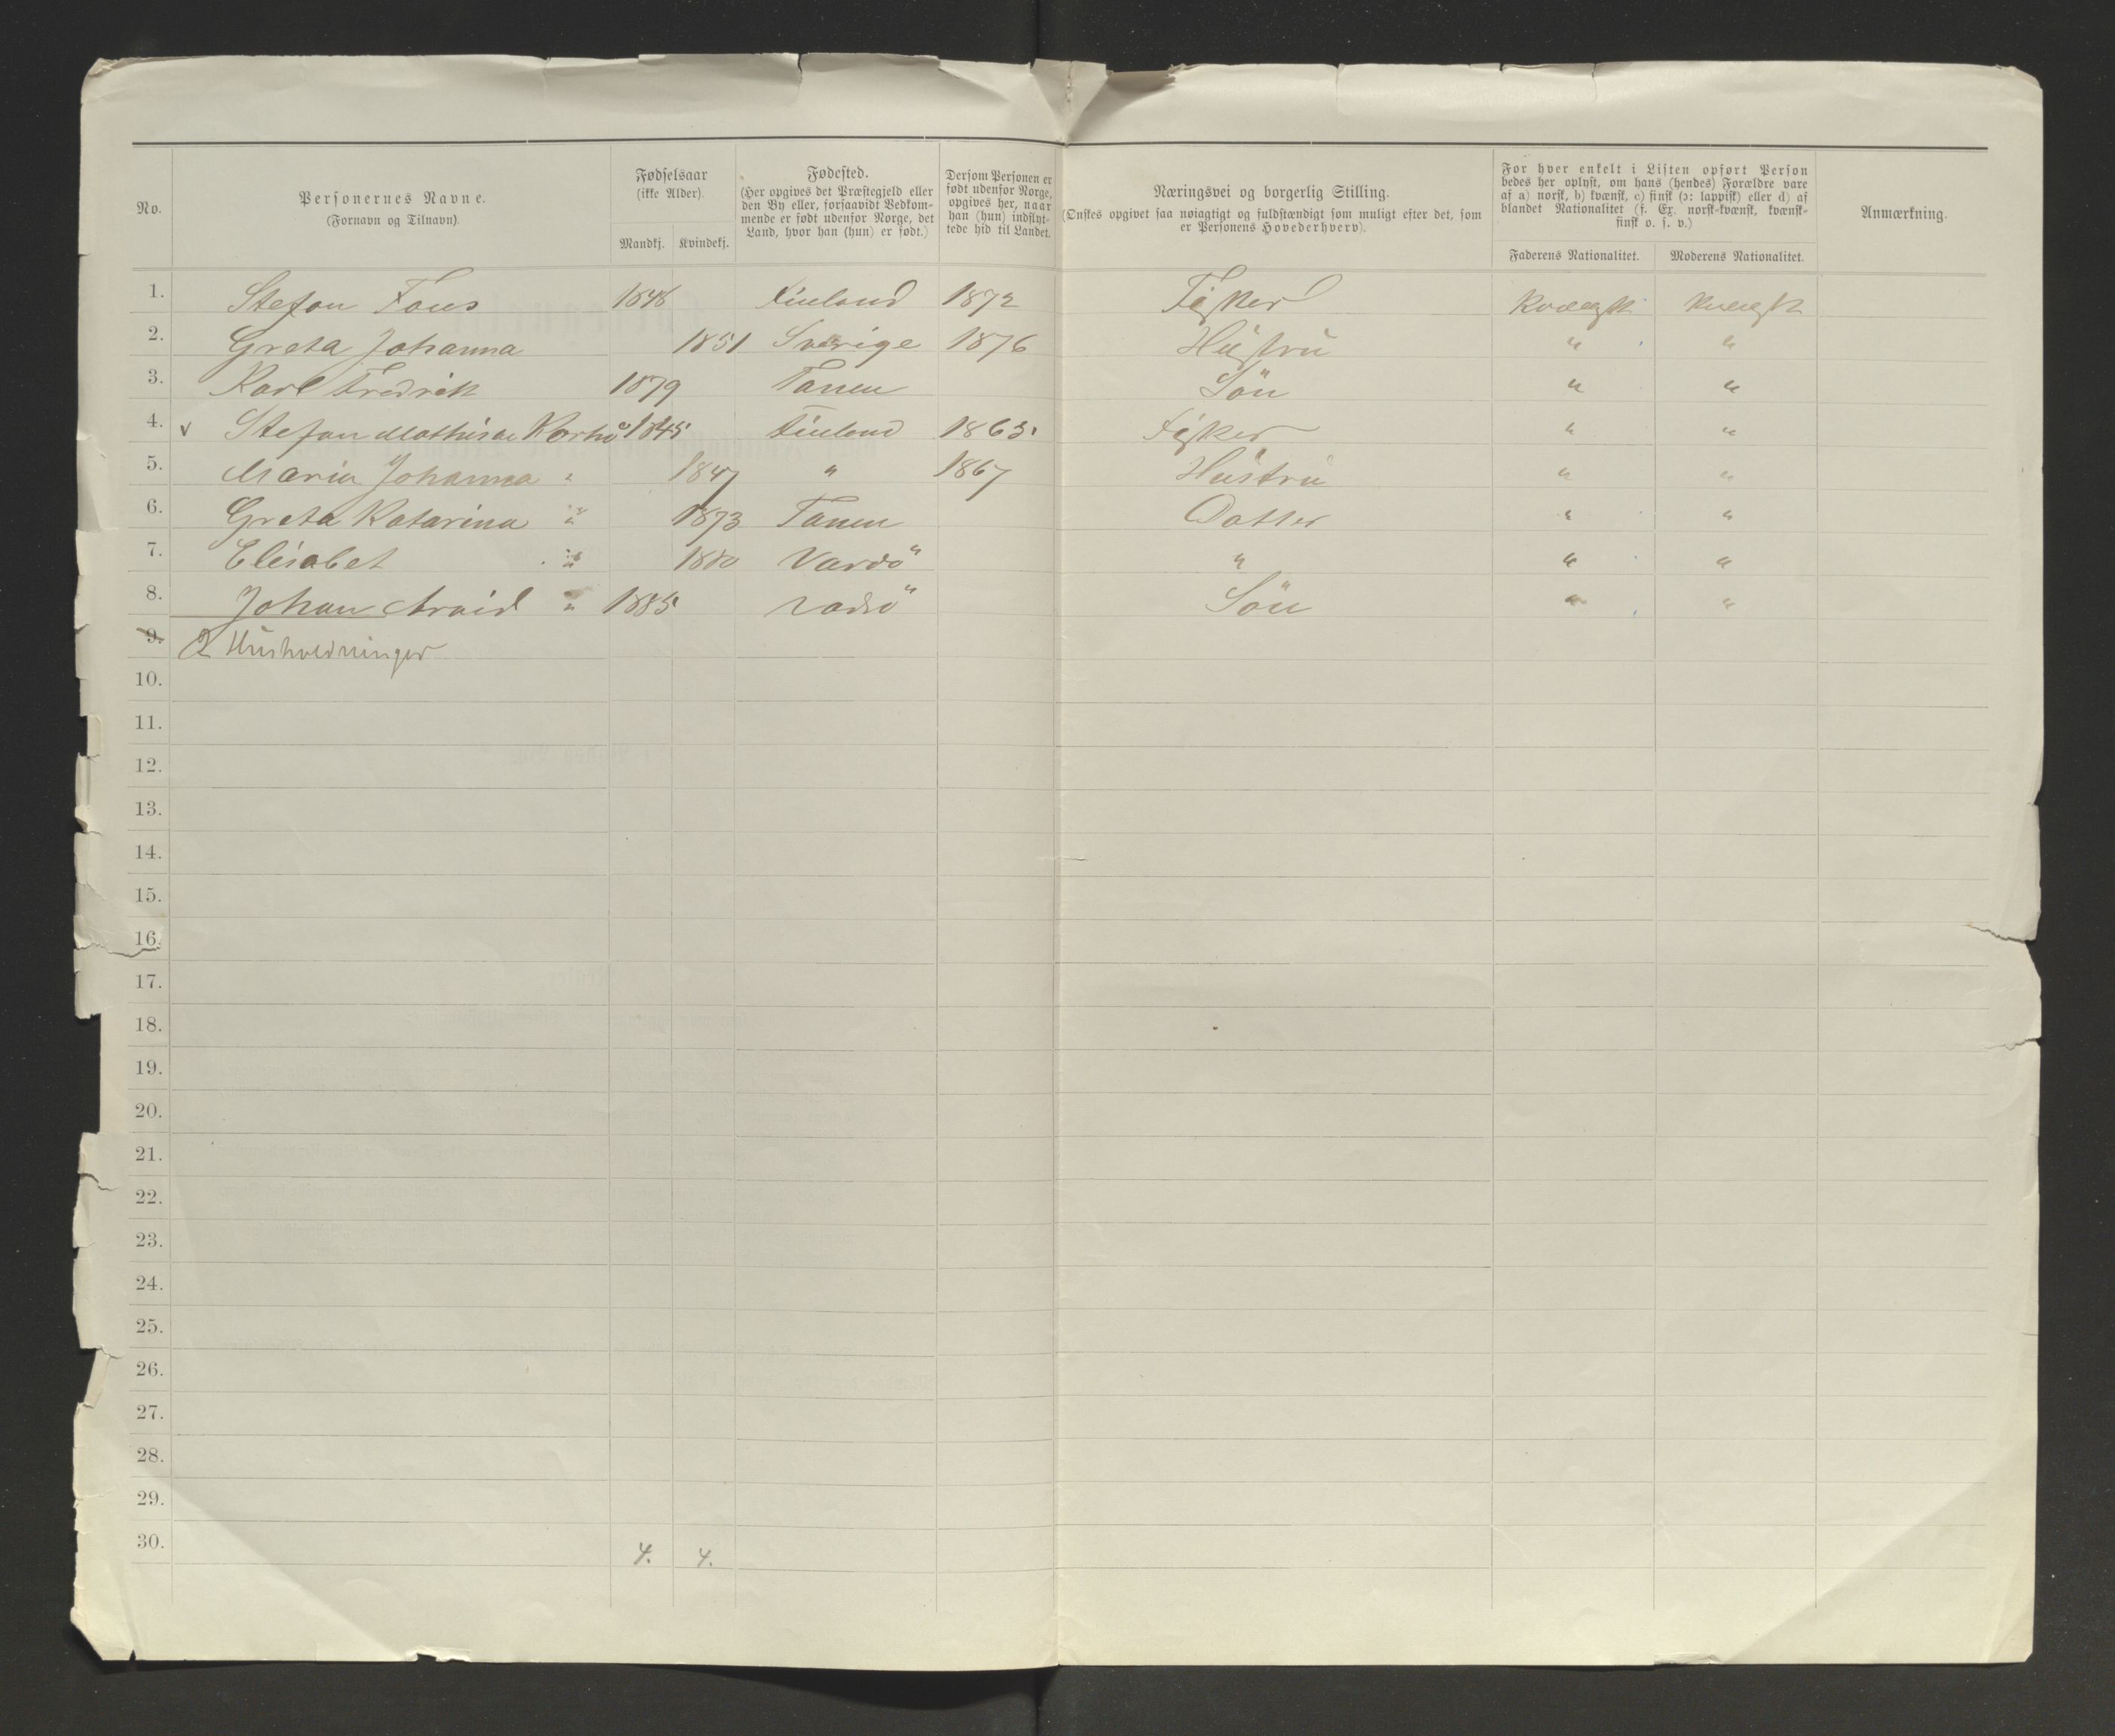 No.
Personernes Navne.
(Fornavn og Tilnavn).
Fødselsaar
(ikke Alder).
Mandkj. Kvindekj.
Fødested.
(Her opgives det Præstegjeld eller
den By eller, forsaavidt Vedkom-
mende er født udenfor Norge, det
Land, hvor han (hun) er født.)
Dersom Personen er
født udenfor Norge,
opgives her, naar
han (hun) indflyt-
tede hid til Landet.
Næringsvei og borgerlig Stilling.
(Ønskes opgivet saa nøiagtigt og fuldstændigt som muligt efter det, som
er Personens Hovederhverv).
For hver enkelt i Listen opført Person
bedes her oplyst, om hans (hendes) Forældre vare
af a) norsk, b) kvænsk, c) finsk (ɔ: lappisk) eller d) af
blandet Nationalitet (f. Ex. norsk-kvænsk, kvænsk-
finsk o. s. v.)
Faderens Nationalitet. Moderens Nationalitet.
Anmærkning.
1. Stefan 1848 Finland 1872 Fisker kvænsk kvænsk
2. Greta Johanna 1851 Sverige 1876 Hustru " "
3. Karl Fredrik 1879 Tanen Sön " "
4. v Stefan 1845 Finland 1865. Fisker " "
5. Maria Johanna " 1847 " 1867 Hustru " "
6. Greta Katarina " 1873 Tanen Datter " "
7. Elisabet " 1880 Vardö " " "
8. Johan Arvid " 1885 Vadsö Sön " "
9. 2 Husholdninger
10.
11.
12.
13.
14.
15.
16.
17.
18.
19.
20.
21.
22.
23.
24.
25.
26.
27.
28.
29.
30. 4. 4.